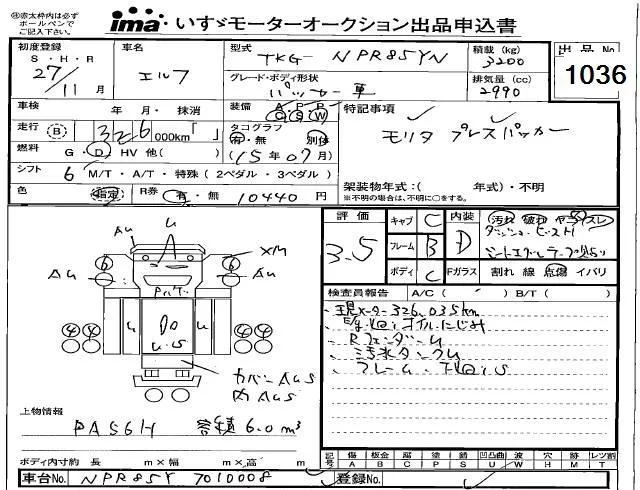 ※赤太枠内は必ず
ボールペンで
ご記入下さい。
ima いすゞモーターオークション出品申込書
初度登録
S・H・R
27/11月
車名
エルフ
型式
TKG- NPR85YN
積載 (kg)
3200
出品No
1036
グレード・ボディ形状
パッカー車
排気量 (cc)
2990
車検 年・月・抹消
装備 A P P
C S W
特記事項
モリタ プレスパッカー
走行 B 326 000km「 」
タコグラフ
有・無 別体
(15年07月)
燃料 G・D HV 他( )
シフト 6 M/T・A/T・特殊(2ペダル・3ペダル)
架装物年式:( 年式)・不明
※不明の場合は、不明に○をする。
色 指定 R券 有・無 10440 円
評価
3.5
キャブ C
フレーム B
ボディ C
内装 D
汚れ 破れ ヤニ スレ
Fガラス 割れ 線 点傷 イバリ
検査員報告 A/C( ) B/T( )
現メーター326,035km
E/g廻りオイルにじみ
RフェンダーU
汚水タンクU
フレーム・下廻りS
AU U
AU
6 6
XM
AU AU
U U
U・S
4 4 4 4
カバーAUS
内AUS
上物情報
PA56H 容積6.0m³
ボディ内寸約 長 m×幅 m×高 m
記号
傷 板金 補 塗 錆 凹凸曲 波 穴 跡 対 レツ割
A B C P S U W H M T L
車台No. NPR85Y 7010008
登録No.